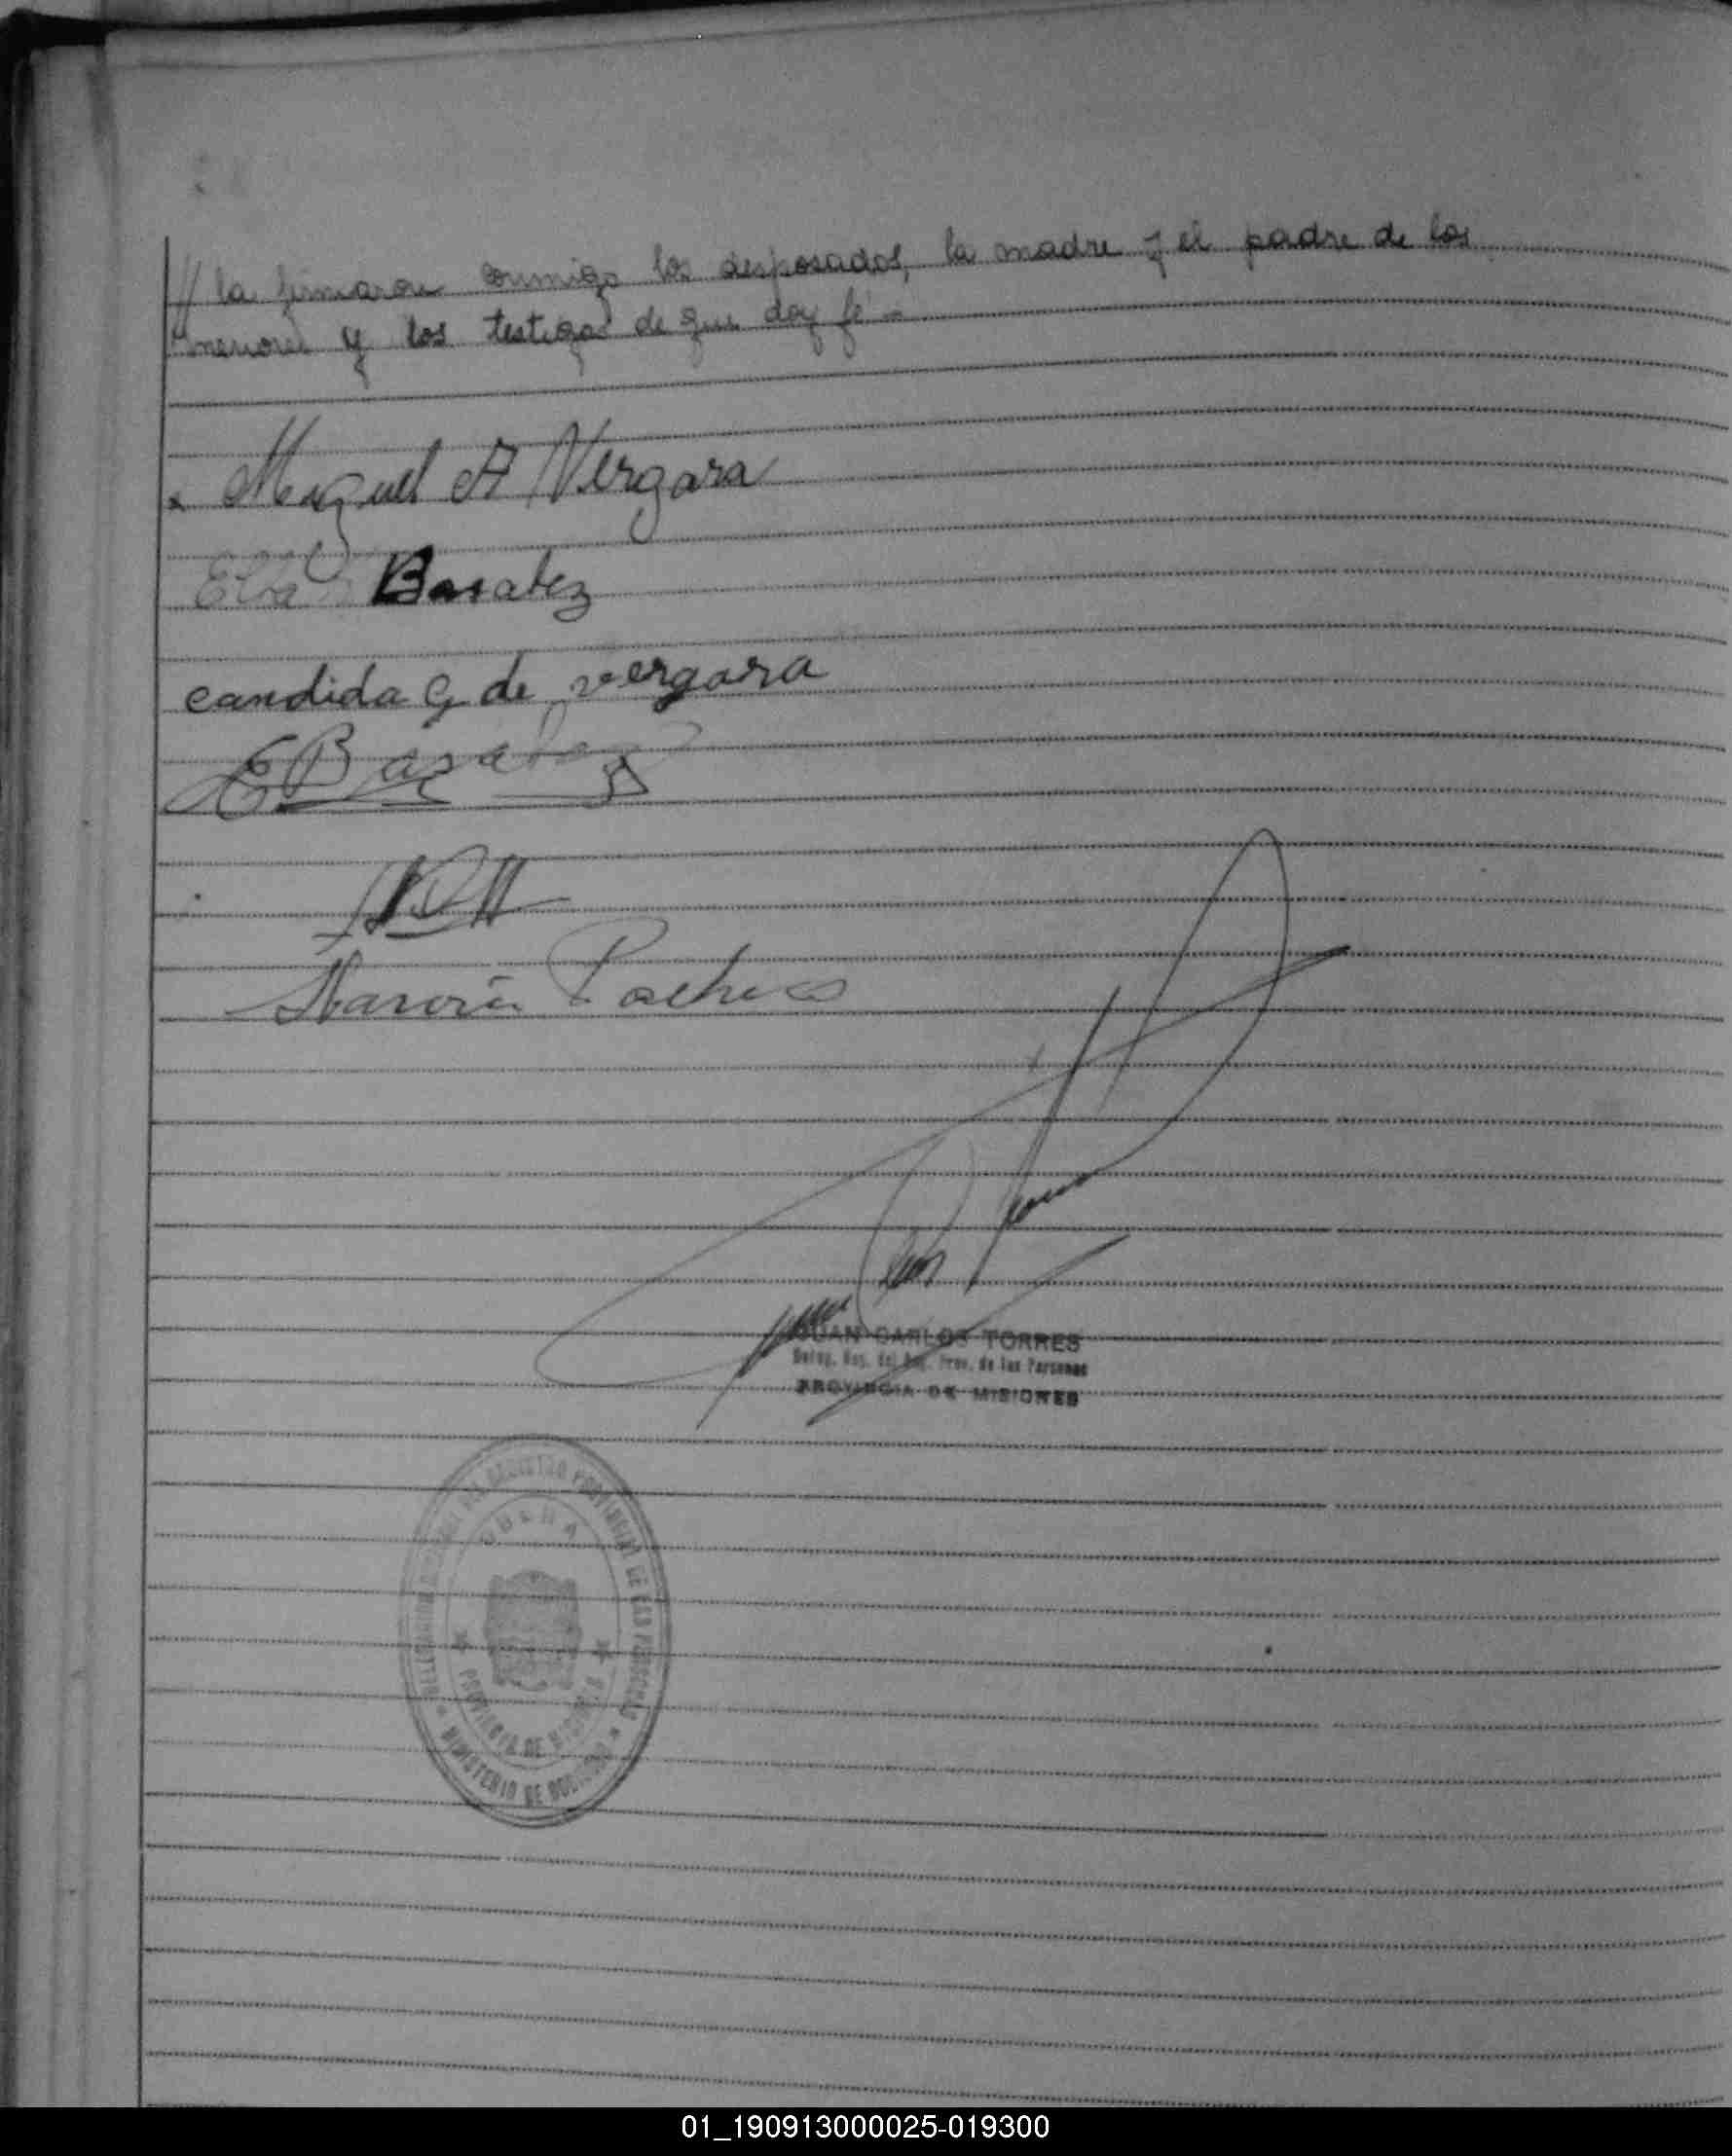 // la firmaron conmigo los desposados, la madre y el padre de los
menores y los testigos de que doy fé -
Miguel A Vergara
Elva Basabez
candida G de vergara
EBasabez
Pacheco
JUAN CARLOS TORRES
Prov. de las Personas
PROVINCIA DE MISIONES
REGISTRO PROVINCIAL DE LAS PERSONAS
OBERA
PROVINCIA DE MISIONES
MINISTERIO DE GOBIERNO
01_190913000025-019300